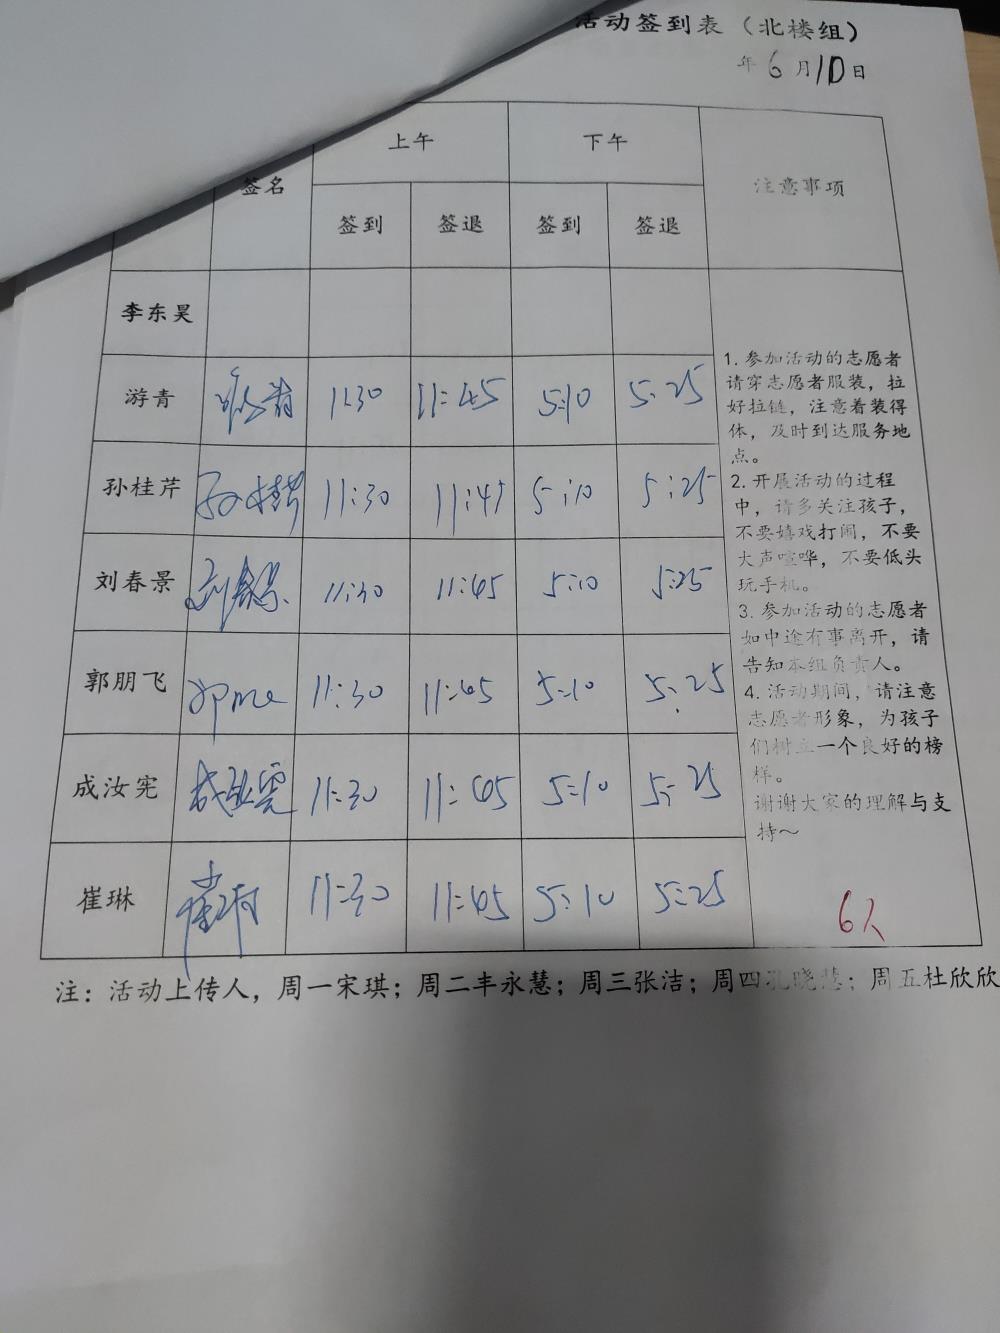 活动签到表（北楼组）
年6月10日
签名 上午 下午 注意事项
签到 签退 签到 签退
李东昊
游青 11:30 11:45 5:10 5:25
孙桂芹 孙桂芹 11:30 11:45 5:10 5:25
刘春景 刘春景 11:30 11:45 5:10 5:25
郭朋飞 11:30 11:45 5:10 5:25
成汝宪 成汝宪 11:30 11:45 5:10 5:25
崔琳 崔琳 11:30 11:45 5:10 5:25
1. 参加活动的志愿者
请穿志愿者服装，拉
好拉链，注意着装得
体，及时到达服务地
点。
2. 开展活动的过程
中，请多关注孩子，
不要嬉戏打闹，不要
大声喧哗，不要低头
玩手机。
3. 参加活动的志愿者
如中途有事离开，请
告知本组负责人。
4. 活动期间，请注意
志愿者形象，为孩子
们树立一个良好的榜
样。
谢谢大家的理解与支
持～
6人
注：活动上传人，周一宋琪；周二丰永慧；周三张洁；周四孔晓慧；周五杜欣欣